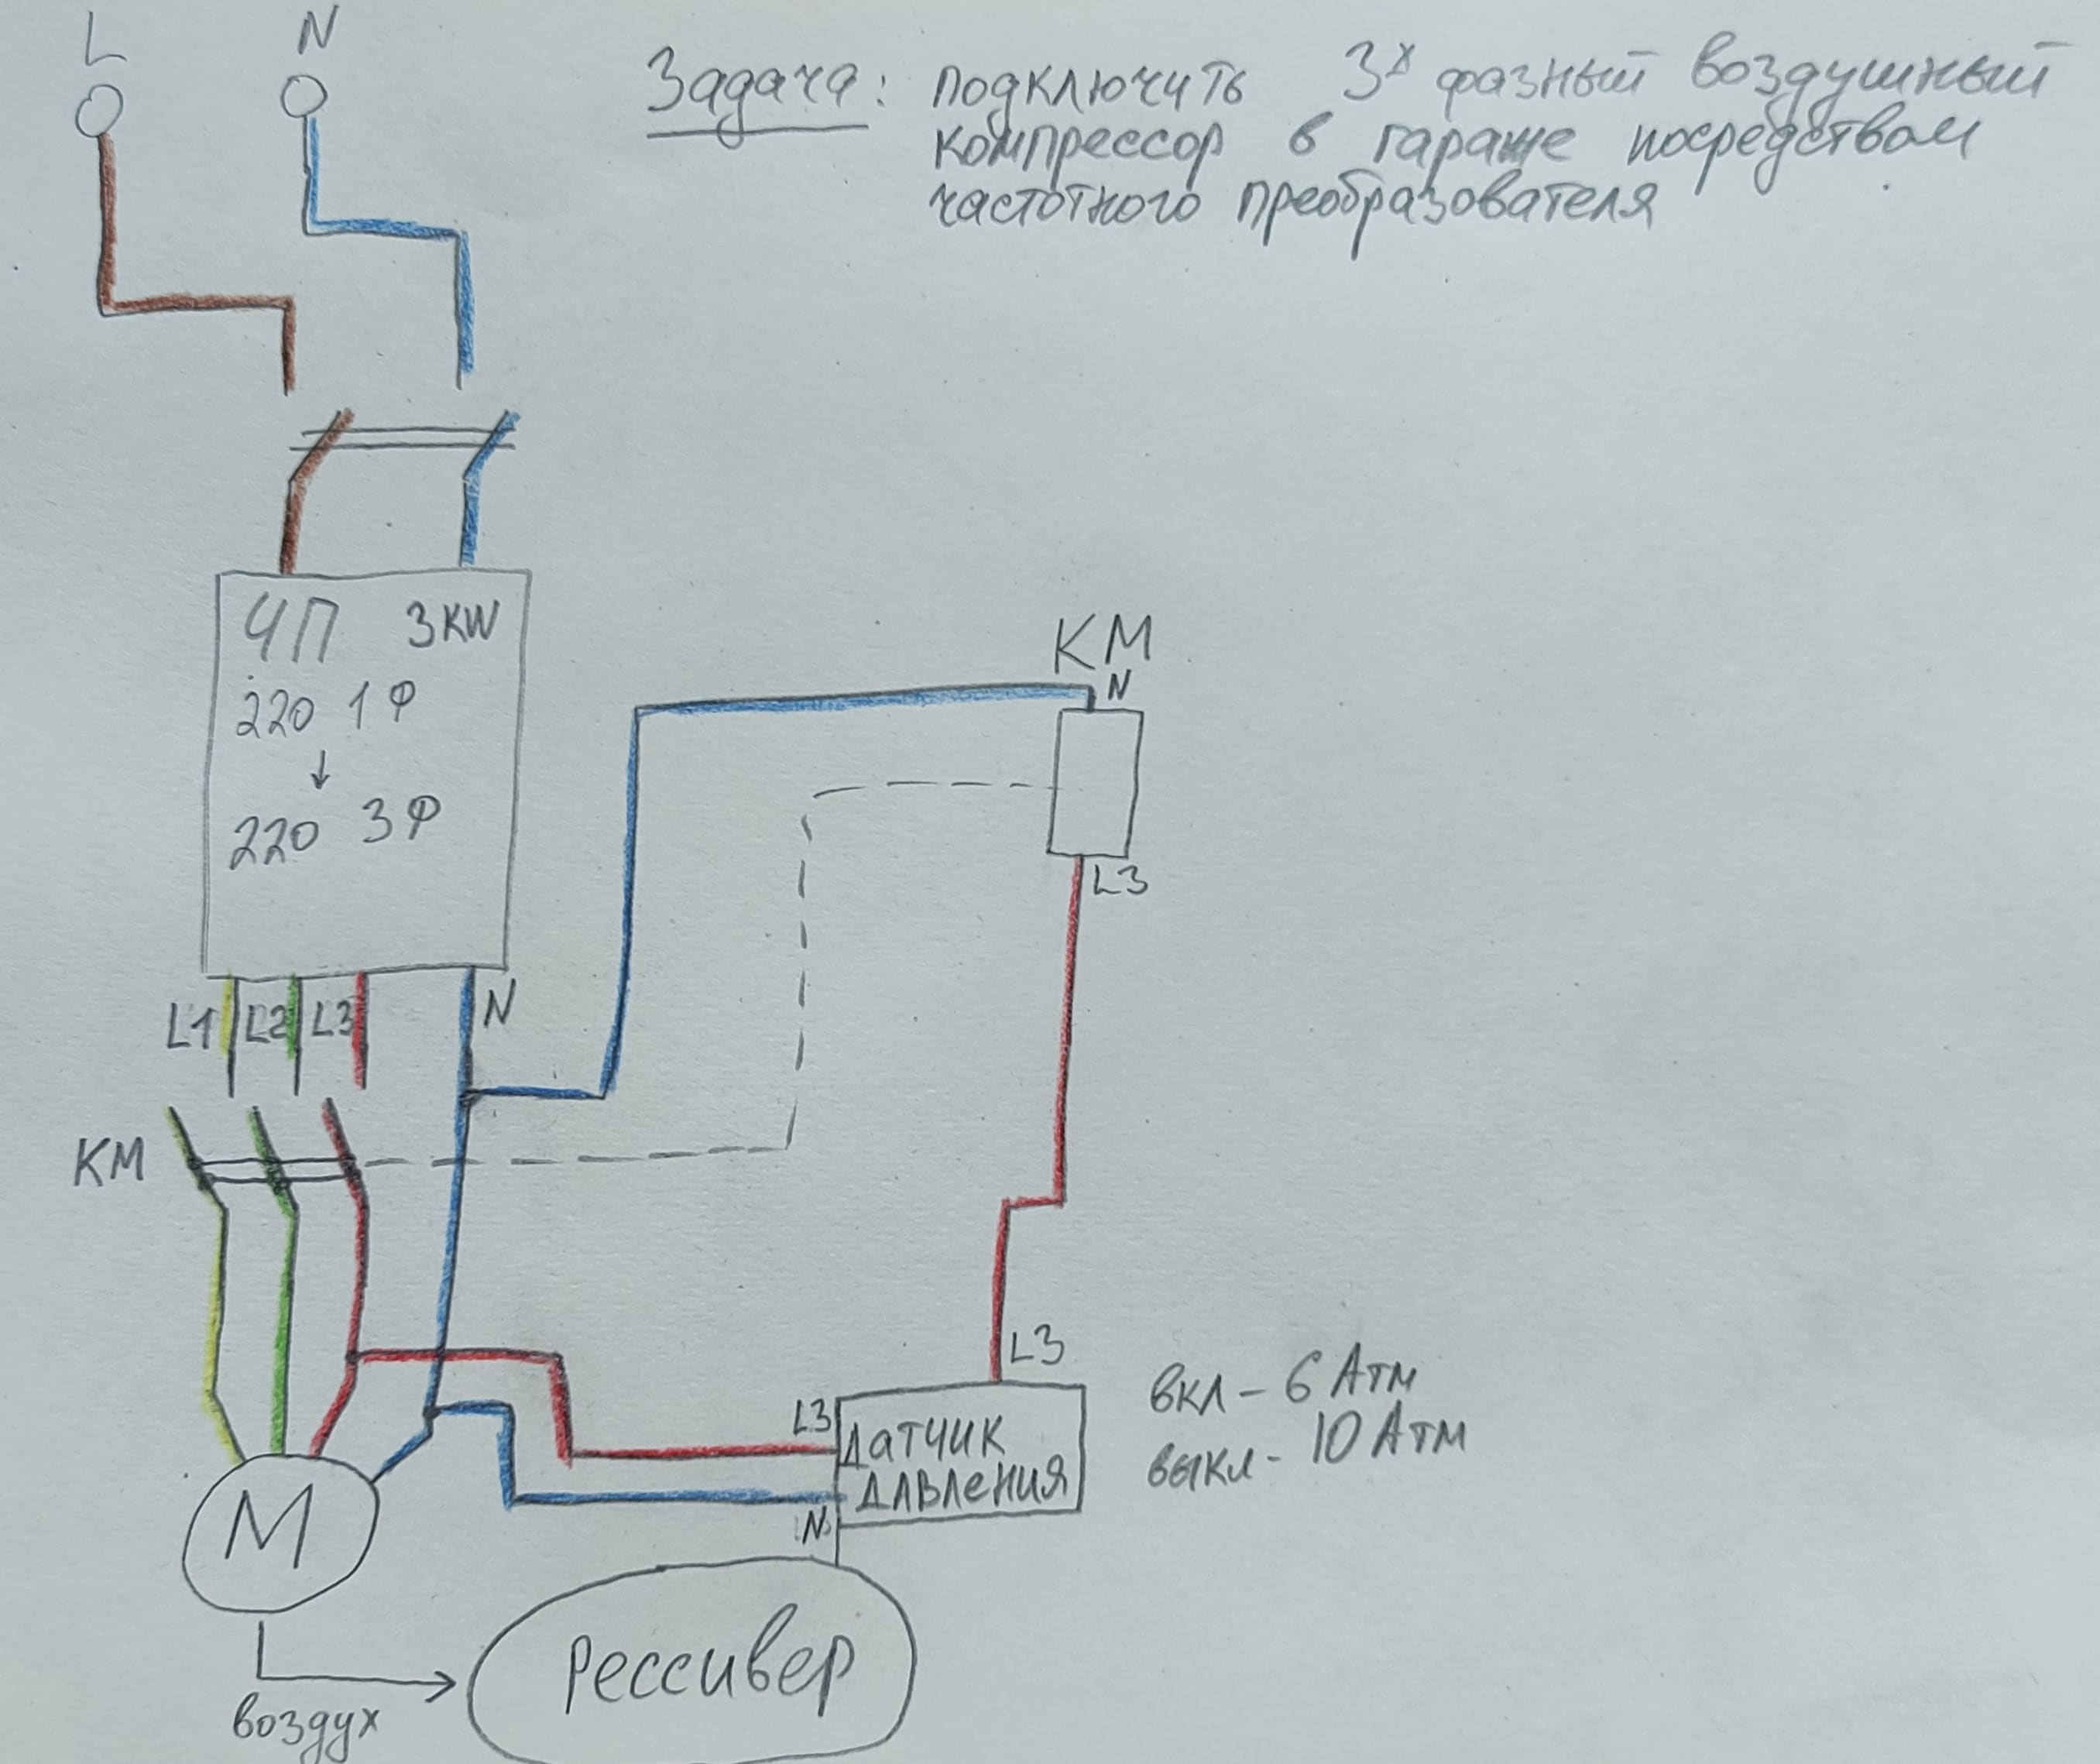 L N
Задача: подключить 3х фазный воздушный
компрессор в гараже посредством
частотного преобразователя
ЧП 3KW
220 1Ф
↓
220 3Ф
KM
N
L3
L1 L2 L3 N
KM
L3
вкл - 6 Атм
выкл - 10 Атм
L3
Датчик
давления
N
M
Рессивер
воздух